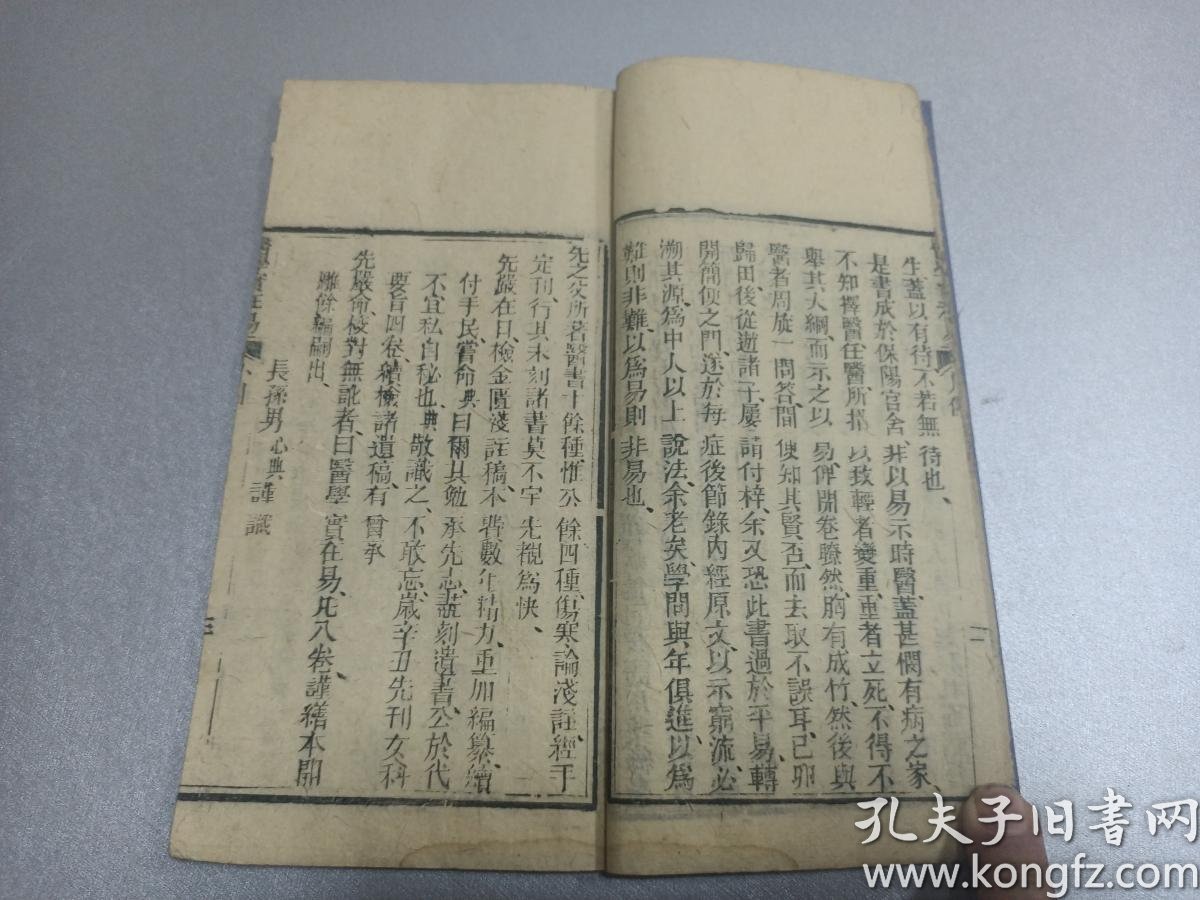 生蓋以有待不若無待也、
是書成於保陽官舍、非以易示時醫、蓋甚憫有病之家
不知擇醫任醫、所損以致輕者變重、重者立死、不得不
舉其大綱、而示之以易、俾開卷瞭然、胸有成竹、然後與
醫者周旋、一問答間、便知其賢否、而去取不誤耳、己卯
歸田、後從遊諸子、屢請付梓、余又恐此書過於平易、轉
開簡便之門、遂於每症後節錄內經原文、以示窮流必
溯其源、為中人以上說法、余老矣、學問與年俱進、以為
難則非難、以為易則非易也、
先大父所著醫書十餘種、惟公餘四種、傷寒論淺註、經手
定刊行、其未刻諸書莫不字先覩為快、
先嚴在日、檢金匱淺註稿本、費數年精力、重加編纂、續
付手民、嘗命典曰、爾其勉承先志、毓刻遺書、公於代
不宜私自秘也、典敬識之、不敢忘、歲辛丑先刊女科
要旨四卷、續檢諸遺稿、有曾承
先嚴命、校對無訛者、曰醫學實在易、凡八卷、謹繕本開
雕、餘編嗣出、
長孫男心典謹識
二
孔夫子旧书网
www.kongfz.com